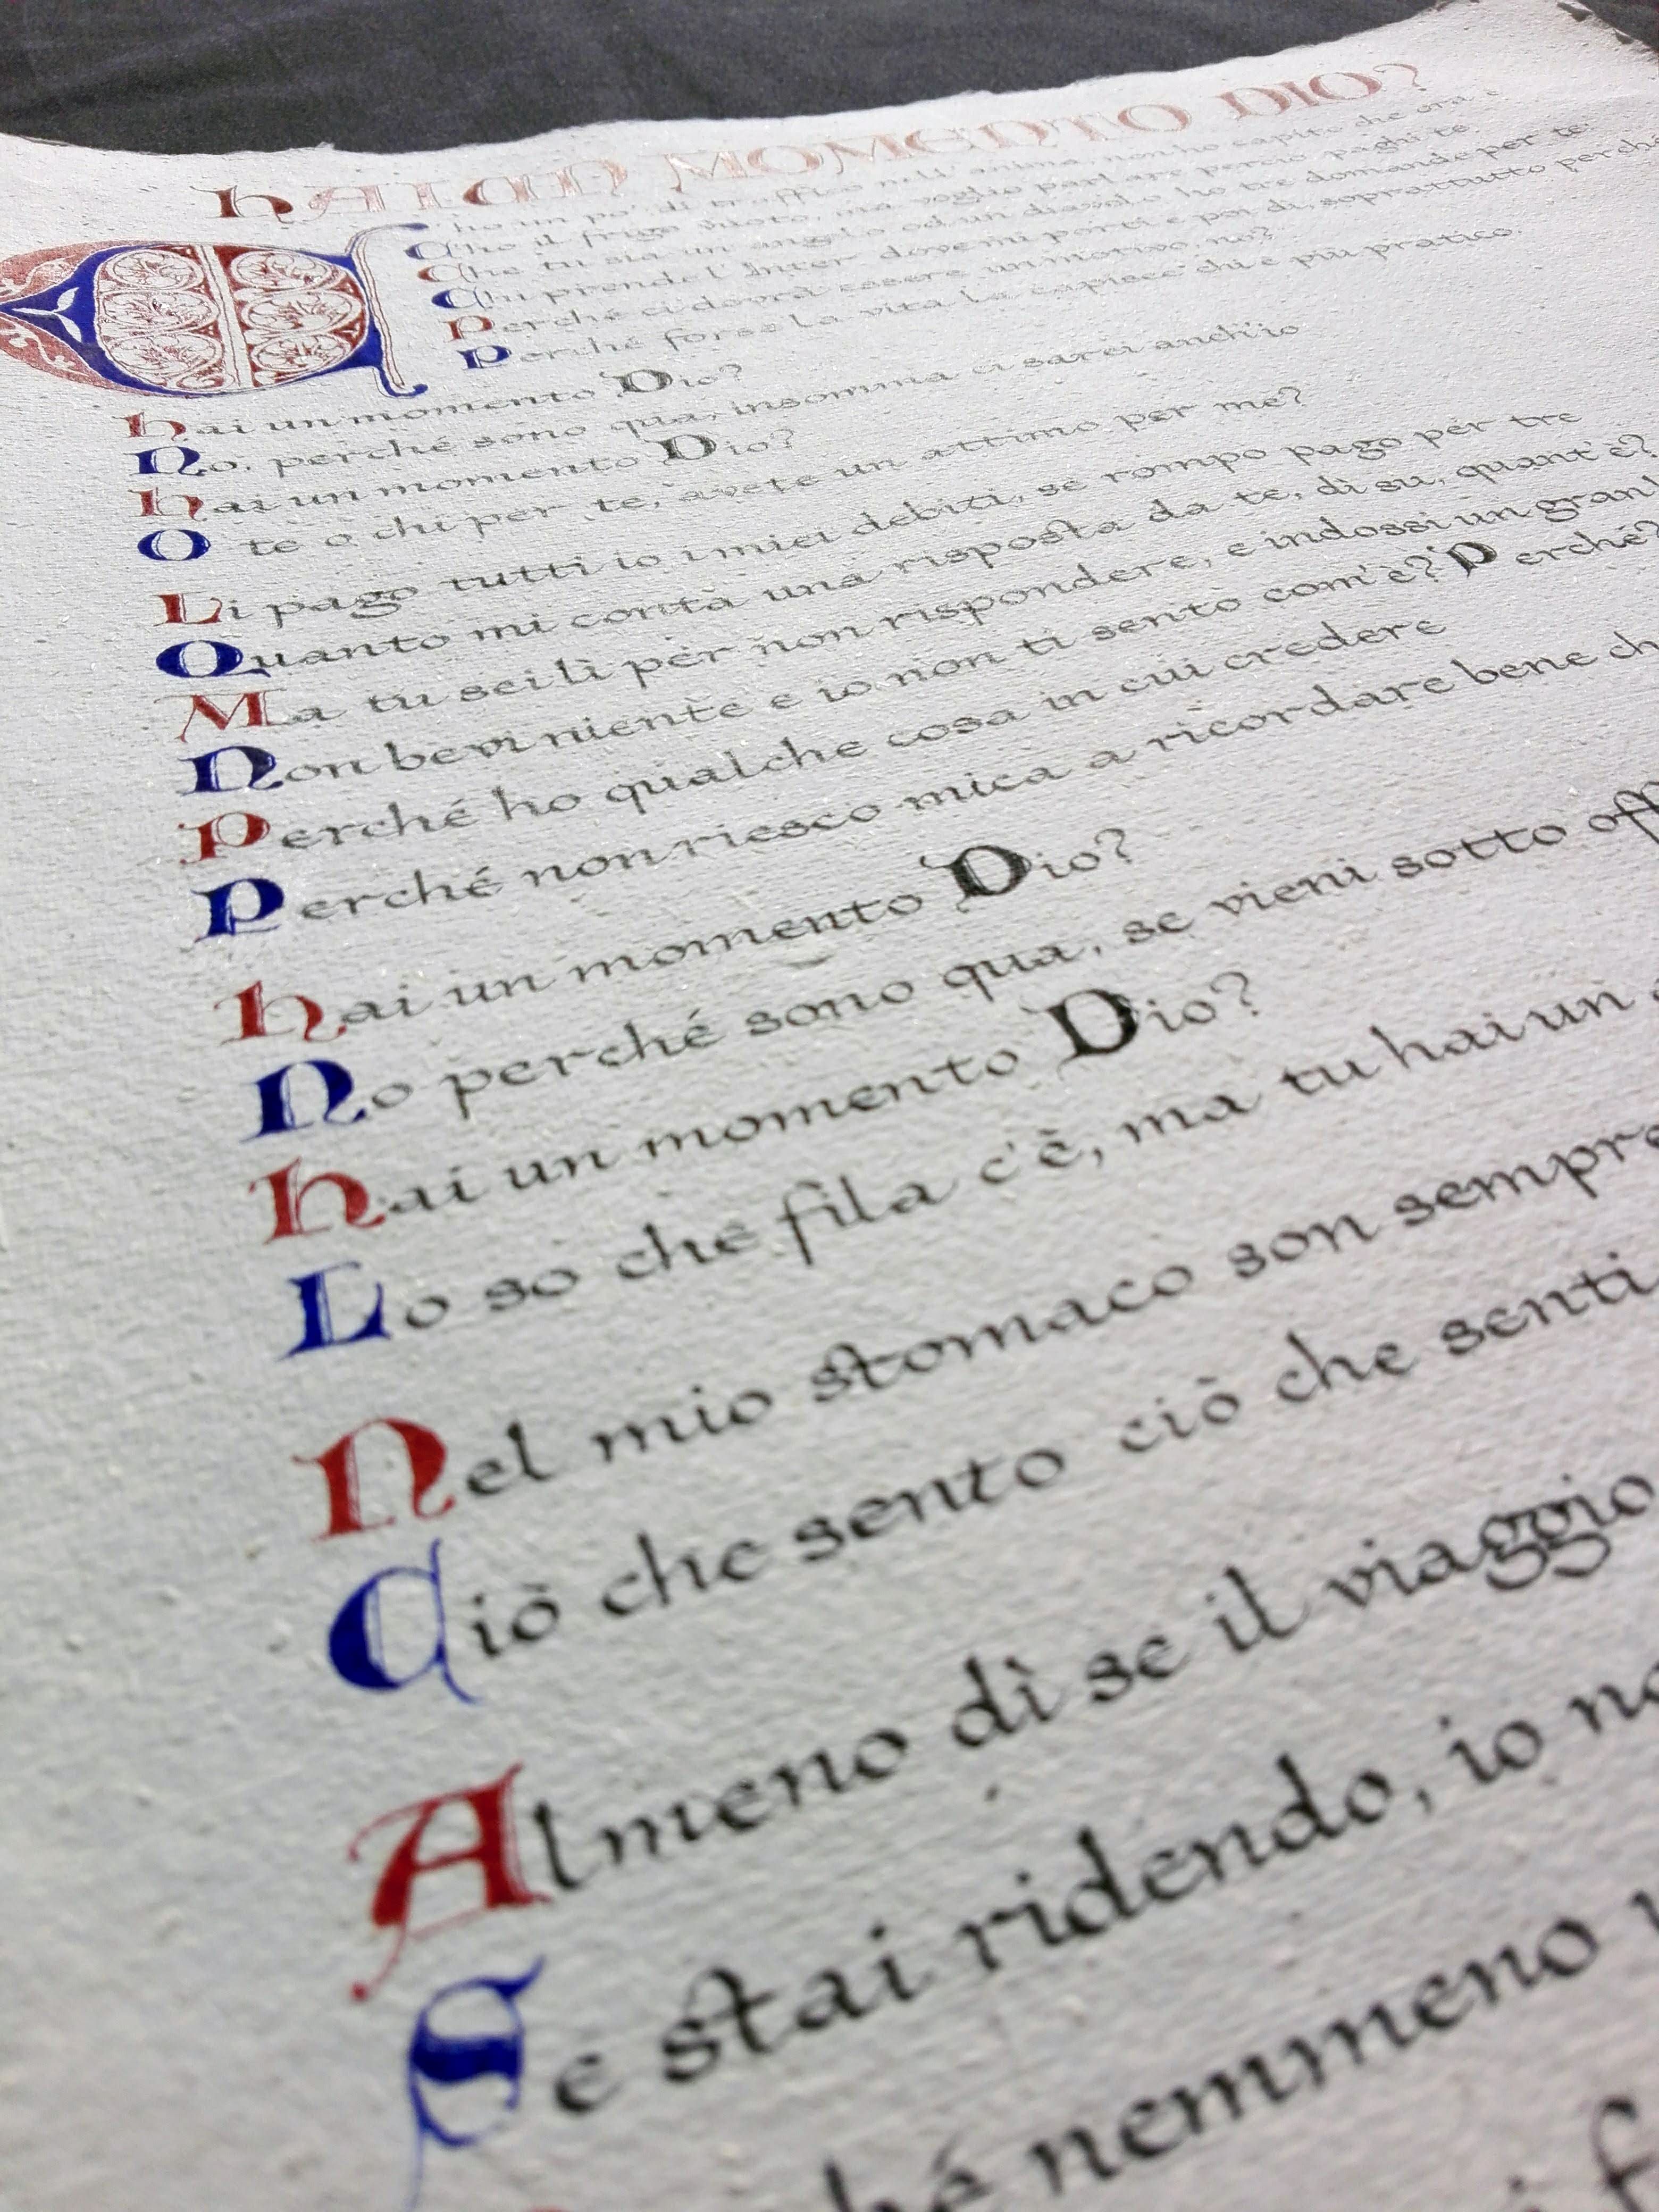 HAI UN MOMENTO DIO?
C'ho un po' di traffico nell'anima, non ho capito che ora è
C'ho il frigo vuoto, ma voglio parlare perciò paghi te.
Che tu sia un angelo od un diavolo ho tre domande per te:
Chi prende l'Inter dove mi porti e poi dì, soprattutto perché
Perché ci dovrà essere un motivo, no?
Perché forse la vita la capisce chi è più pratico.
Hai un momento Dio?
No, perché sono qua, insomma ci sarei anch'io
Hai un momento Dio?
O te o chi per te, avete un attimo per me?
Li pago tutti io i miei debiti, se rompo pago per tre
Quanto mi conta una risposta da te, di su, quant'è?
Ma tu sei lì per non rispondere, e indossi un gran
Non bevi niente e io non ti sento com'è? Perché?
Perché ho qualche cosa in cui credere
Perché non riesco mica a ricordare bene ch
Hai un momento Dio?
No perché sono qua, se vieni sotto off
Hai un momento Dio?
Lo so che fila c'è, ma tu hai un
Nel mio stomaco son sempre
Ciò che sento ciò che senti
Almeno dì se il viaggio
Se stai ridendo, io no
hé nemmeno